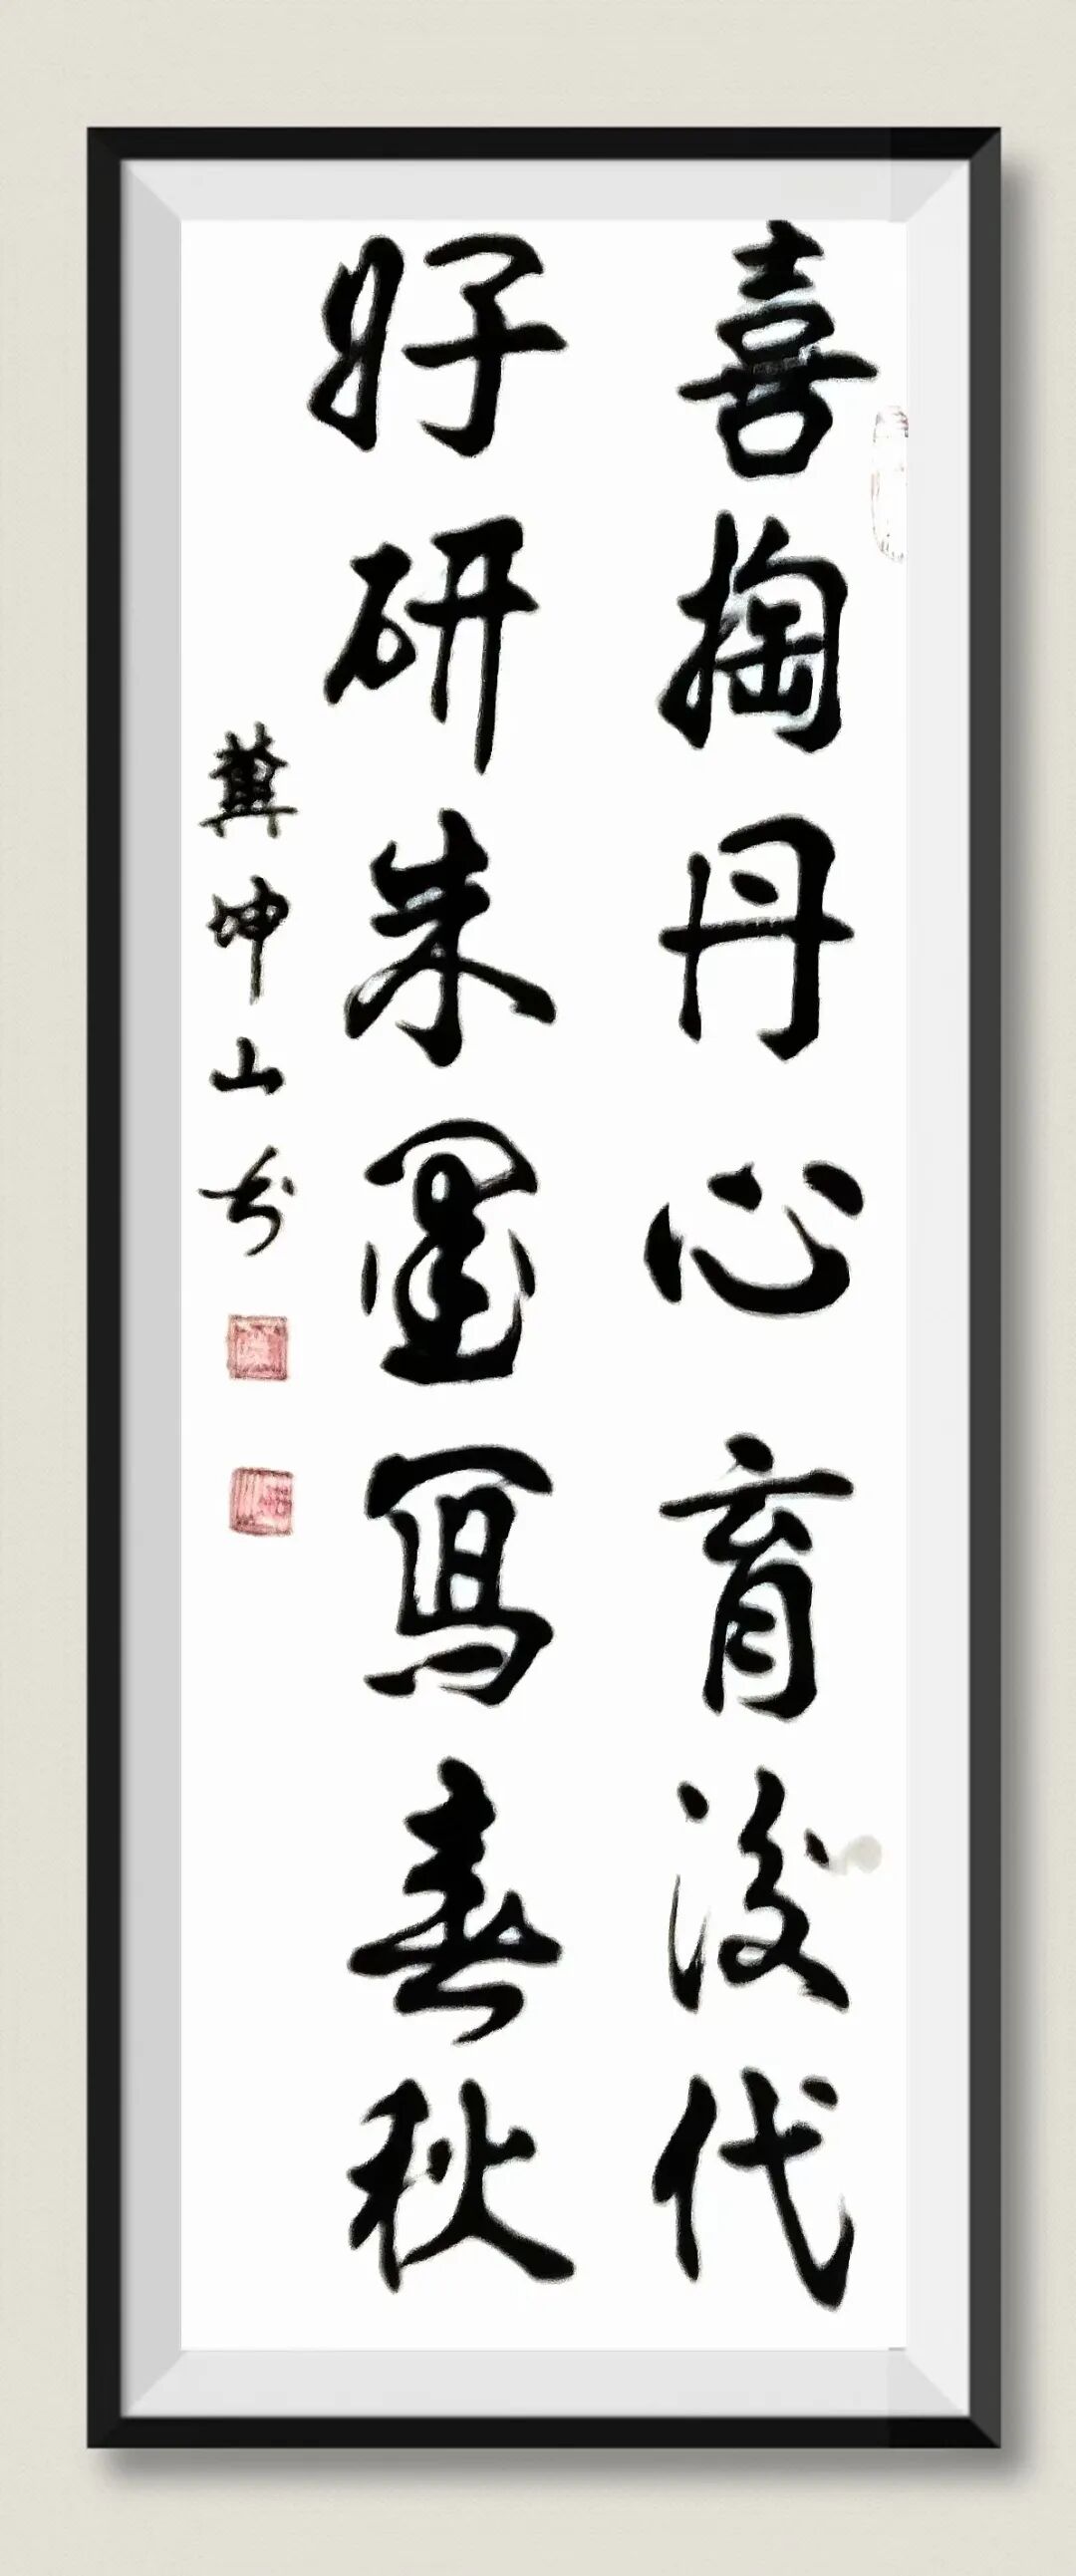 喜掏丹心育後代
好研朱墨寫春秋
龔坤山书